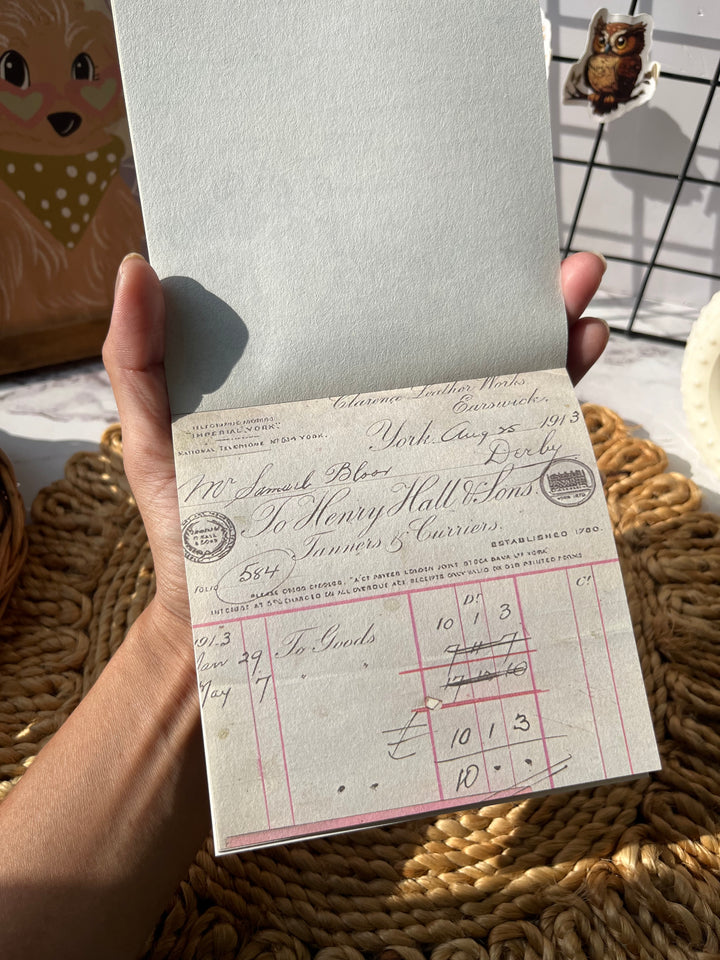 Clarence Leather Works.
Earswick.
TELEGRAPHIC ADDRESS:
"IMPERIAL, YORK."
NATIONAL TELEPHONE Nº 534 YORK.
York, Aug 25 1913
Mr Samuel Bloor Derby
To Henry Hall & Sons.
Tanners & Curriers.
ESTABLISHED 1780.
FOLIO 584
PLEASE CROSS CHEQUES, "A/C PAYEE LONDON JOINT STOCK BANK LTD YORK"
INTEREST AT 5% CHARGED ON ALL OVERDUE A/CS. RECEIPTS ONLY VALID ON OUR PRINTED FORMS
Dr Cr
1913
Jan 29 To Goods 10 1 3
May 7 " "
£ 10 1 3
10 " "